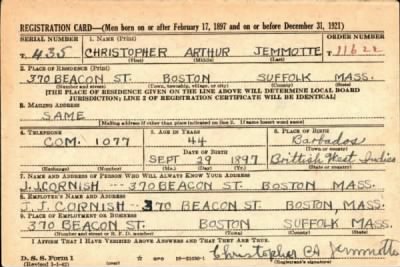 REGISTRATION CARD—(Men born on or after February 17, 1897 and on or before December 31, 1921)
SERIAL NUMBER 1. NAME (Print) ORDER NUMBER
T. 435 CHRISTOPHER ARTHUR JEMMOTTE T. 11622
(First) (Middle) (Last)
2. PLACE OF RESIDENCE (Print)
370 BEACON ST. BOSTON SUFFOLK MASS.
(Number and street) (Town, township, village, or city) (County) (State)
[THE PLACE OF RESIDENCE GIVEN ON THE LINE ABOVE WILL DETERMINE LOCAL BOARD
JURISDICTION; LINE 2 OF REGISTRATION CERTIFICATE WILL BE IDENTICAL]
3. MAILING ADDRESS
SAME
[Mailing address if other than place indicated on line 2. If same insert word same]
4. TELEPHONE 5. AGE IN YEARS 6. PLACE OF BIRTH
COM. 1077 44 Barbados
DATE OF BIRTH (Town or county)
SEPT 29 1897 British West Indies
(Exchange) (Number) (Mo.) (Day) (Yr.) (State or country)
7. NAME AND ADDRESS OF PERSON WHO WILL ALWAYS KNOW YOUR ADDRESS
J. J. CORNISH --- 370 BEACON ST. BOSTON MASS.
8. EMPLOYER'S NAME AND ADDRESS
J. J. CORNISH - 370 BEACON ST. BOSTON MASS.
9. PLACE OF EMPLOYMENT OR BUSINESS
370 BEACON ST. BOSTON SUFFOLK MASS.
(Number and street or R. F. D. number) (Town) (County) (State)
I AFFIRM THAT I HAVE VERIFIED ABOVE ANSWERS AND THAT THEY ARE TRUE.
D. S. S. Form 1 Christopher A Jemmotte
(Revised 1-1-42) (over) (Registrant's signature)